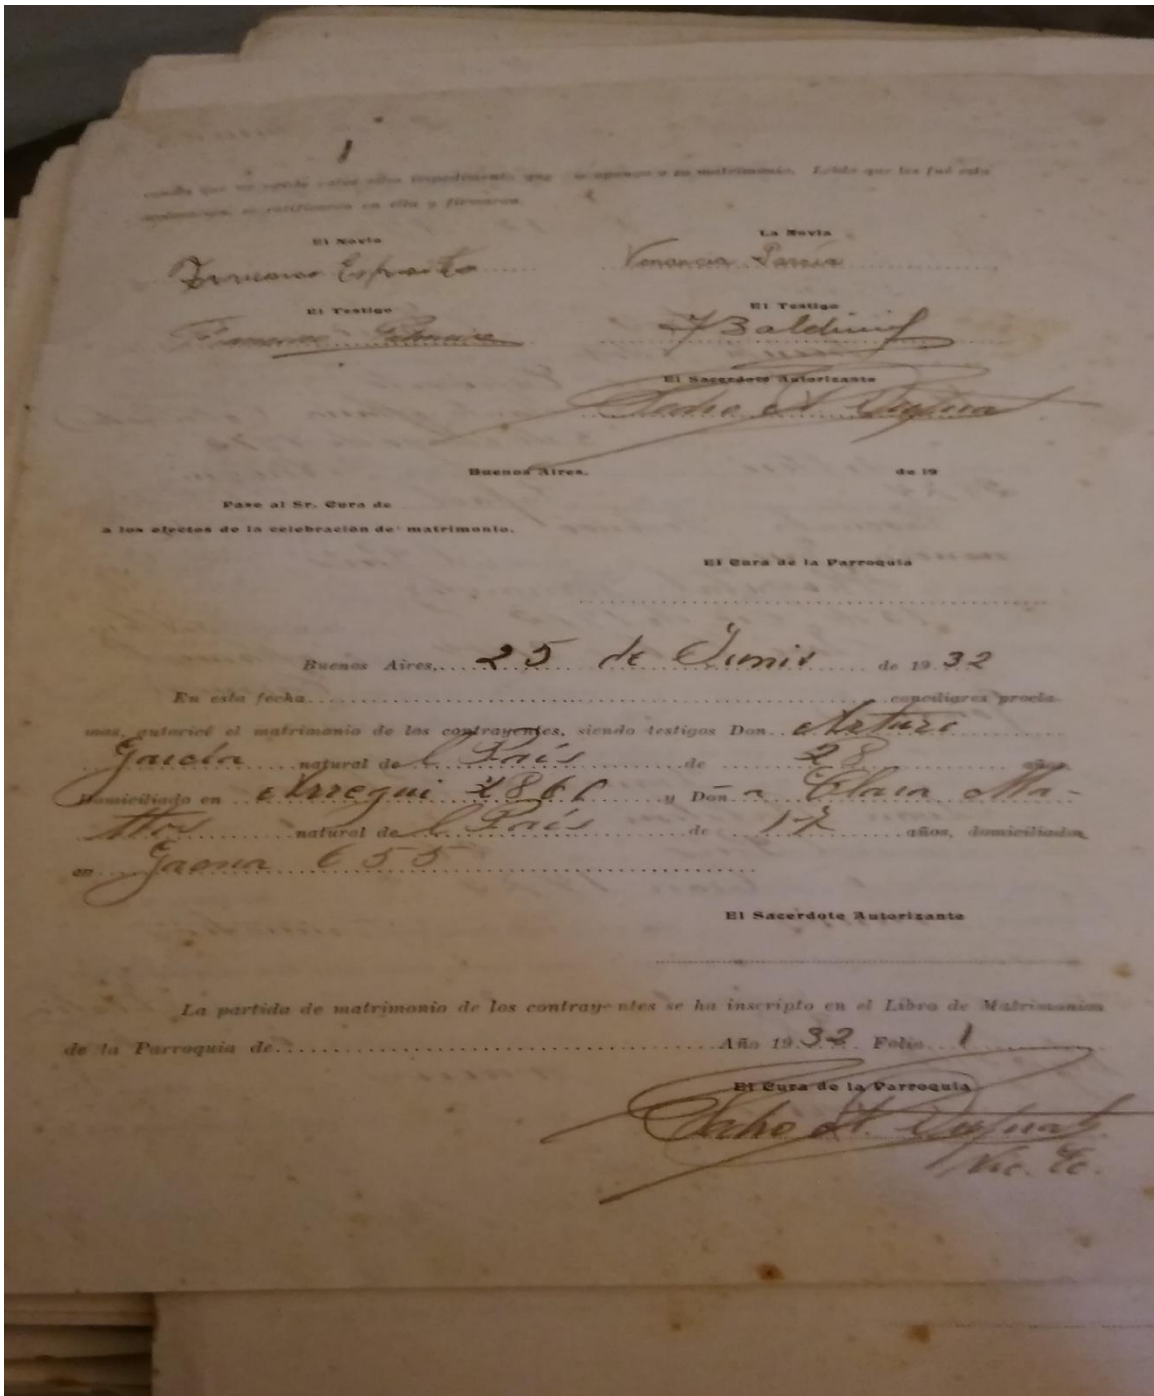 1
conste que no existe entre ellos impedimento que se oponga a su matrimonio. Leída que les fué esta
se ratificaron en ella y firmaron.
El Novio La Novia
Esposito Venancia García
El Testigo El Testigo
Baldini
El Sacerdote Autorizante
Pedro A.
Buenos Aires, de 19
Pase al Sr. Cura de
a los efectos de la celebración de matrimonio.
El Cura de la Parroquia
Buenos Aires, 25 de Junio de 1932
En esta fecha conciliares procla-
mas, autoricé el matrimonio de los contrayentes, siendo testigos Don Arturo
García natural del País de 28 años
Domiciliado en Arregui y Doña Clara Ma-
ttos natural del País de 17 años, domiciliados
en Gaona 655
El Sacerdote Autorizante
La partida de matrimonio de los contrayentes se ha inscripto en el Libro de Matrimonios
de la Parroquia de Año 1932 Folio 1
El Cura de la Parroquia
Pedro A.
Vic. Ec.